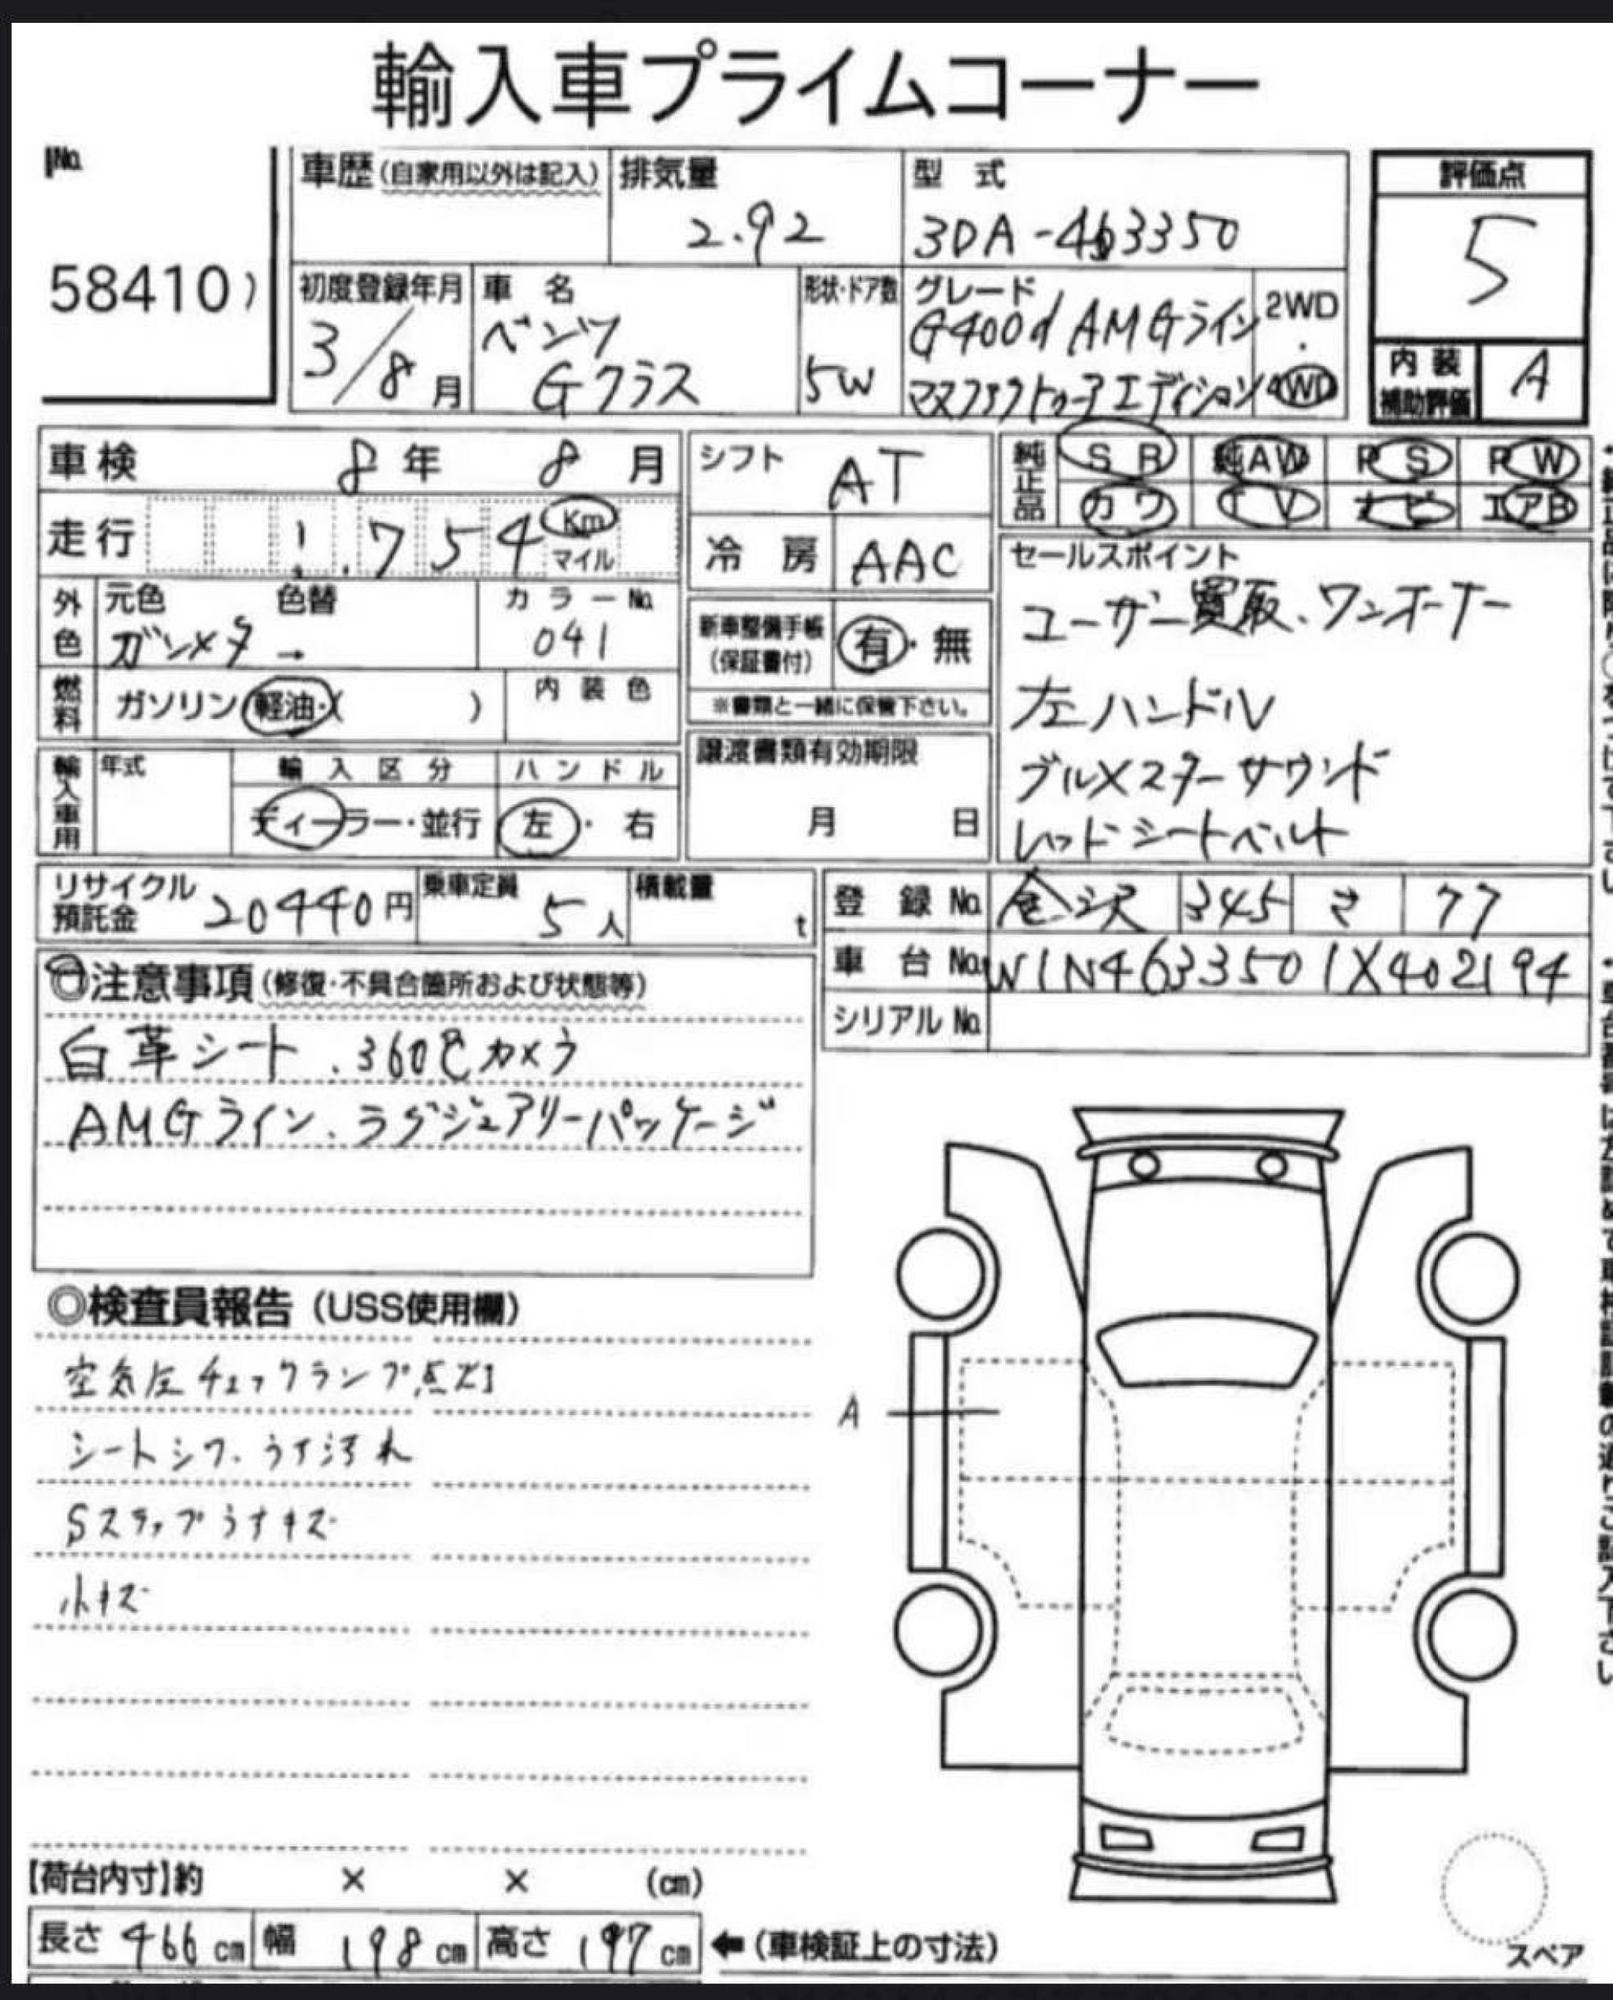 輸入車プライムコーナー
No.
58410)
車歴(自家用以外は記入)
排気量
2.92
型式
3DA-463350
評価点
5
初度登録年月
3/8月
車名
ベンツ
Gクラス
形状・ドア数
5W
グレード
G400d AMGライン
マヌファクトゥーアエディション
2WD
・
4WD
内装
補助評価
A
車検 8年 8月
シフト AT
純正品
SR 純AW PS PW
カワ TV ナビ エアB
走行 1.754 Km
マイル
冷房 AAC
外色
元色 色替
ガンメタ →
カラーNo.
041
新車整備手帳
(保証書付)
有・無
※書類と一緒に保管下さい。
セールスポイント
ユーザー買取、ワンオーナー
左ハンドル
ブルメスターサウンド
レッドシートベルト
燃料
ガソリン・軽油・( )
内装色
輸入車用
年式
輸入区分
ディーラー・並行
ハンドル
左・右
譲渡書類有効期限
月 日
リサイクル
預託金
20440円
乗車定員
5人
積載量
t
登録No. 金沢 345 さ 77
車台No. W1N4633501X402194
シリアルNo.
◎注意事項(修復・不具合箇所および状態等)
白革シート、360℃カメラ
AMGライン、ラグジュアリーパッケージ
◎検査員報告(USS使用欄)
空気圧チェックランプ点灯
シートシワ、うす汚れ
Sステップうすキズ
小キズ
A
【荷台内寸】約 × × (cm)
長さ 466cm 幅 198cm 高さ 197cm ←(車検証上の寸法)
スペア